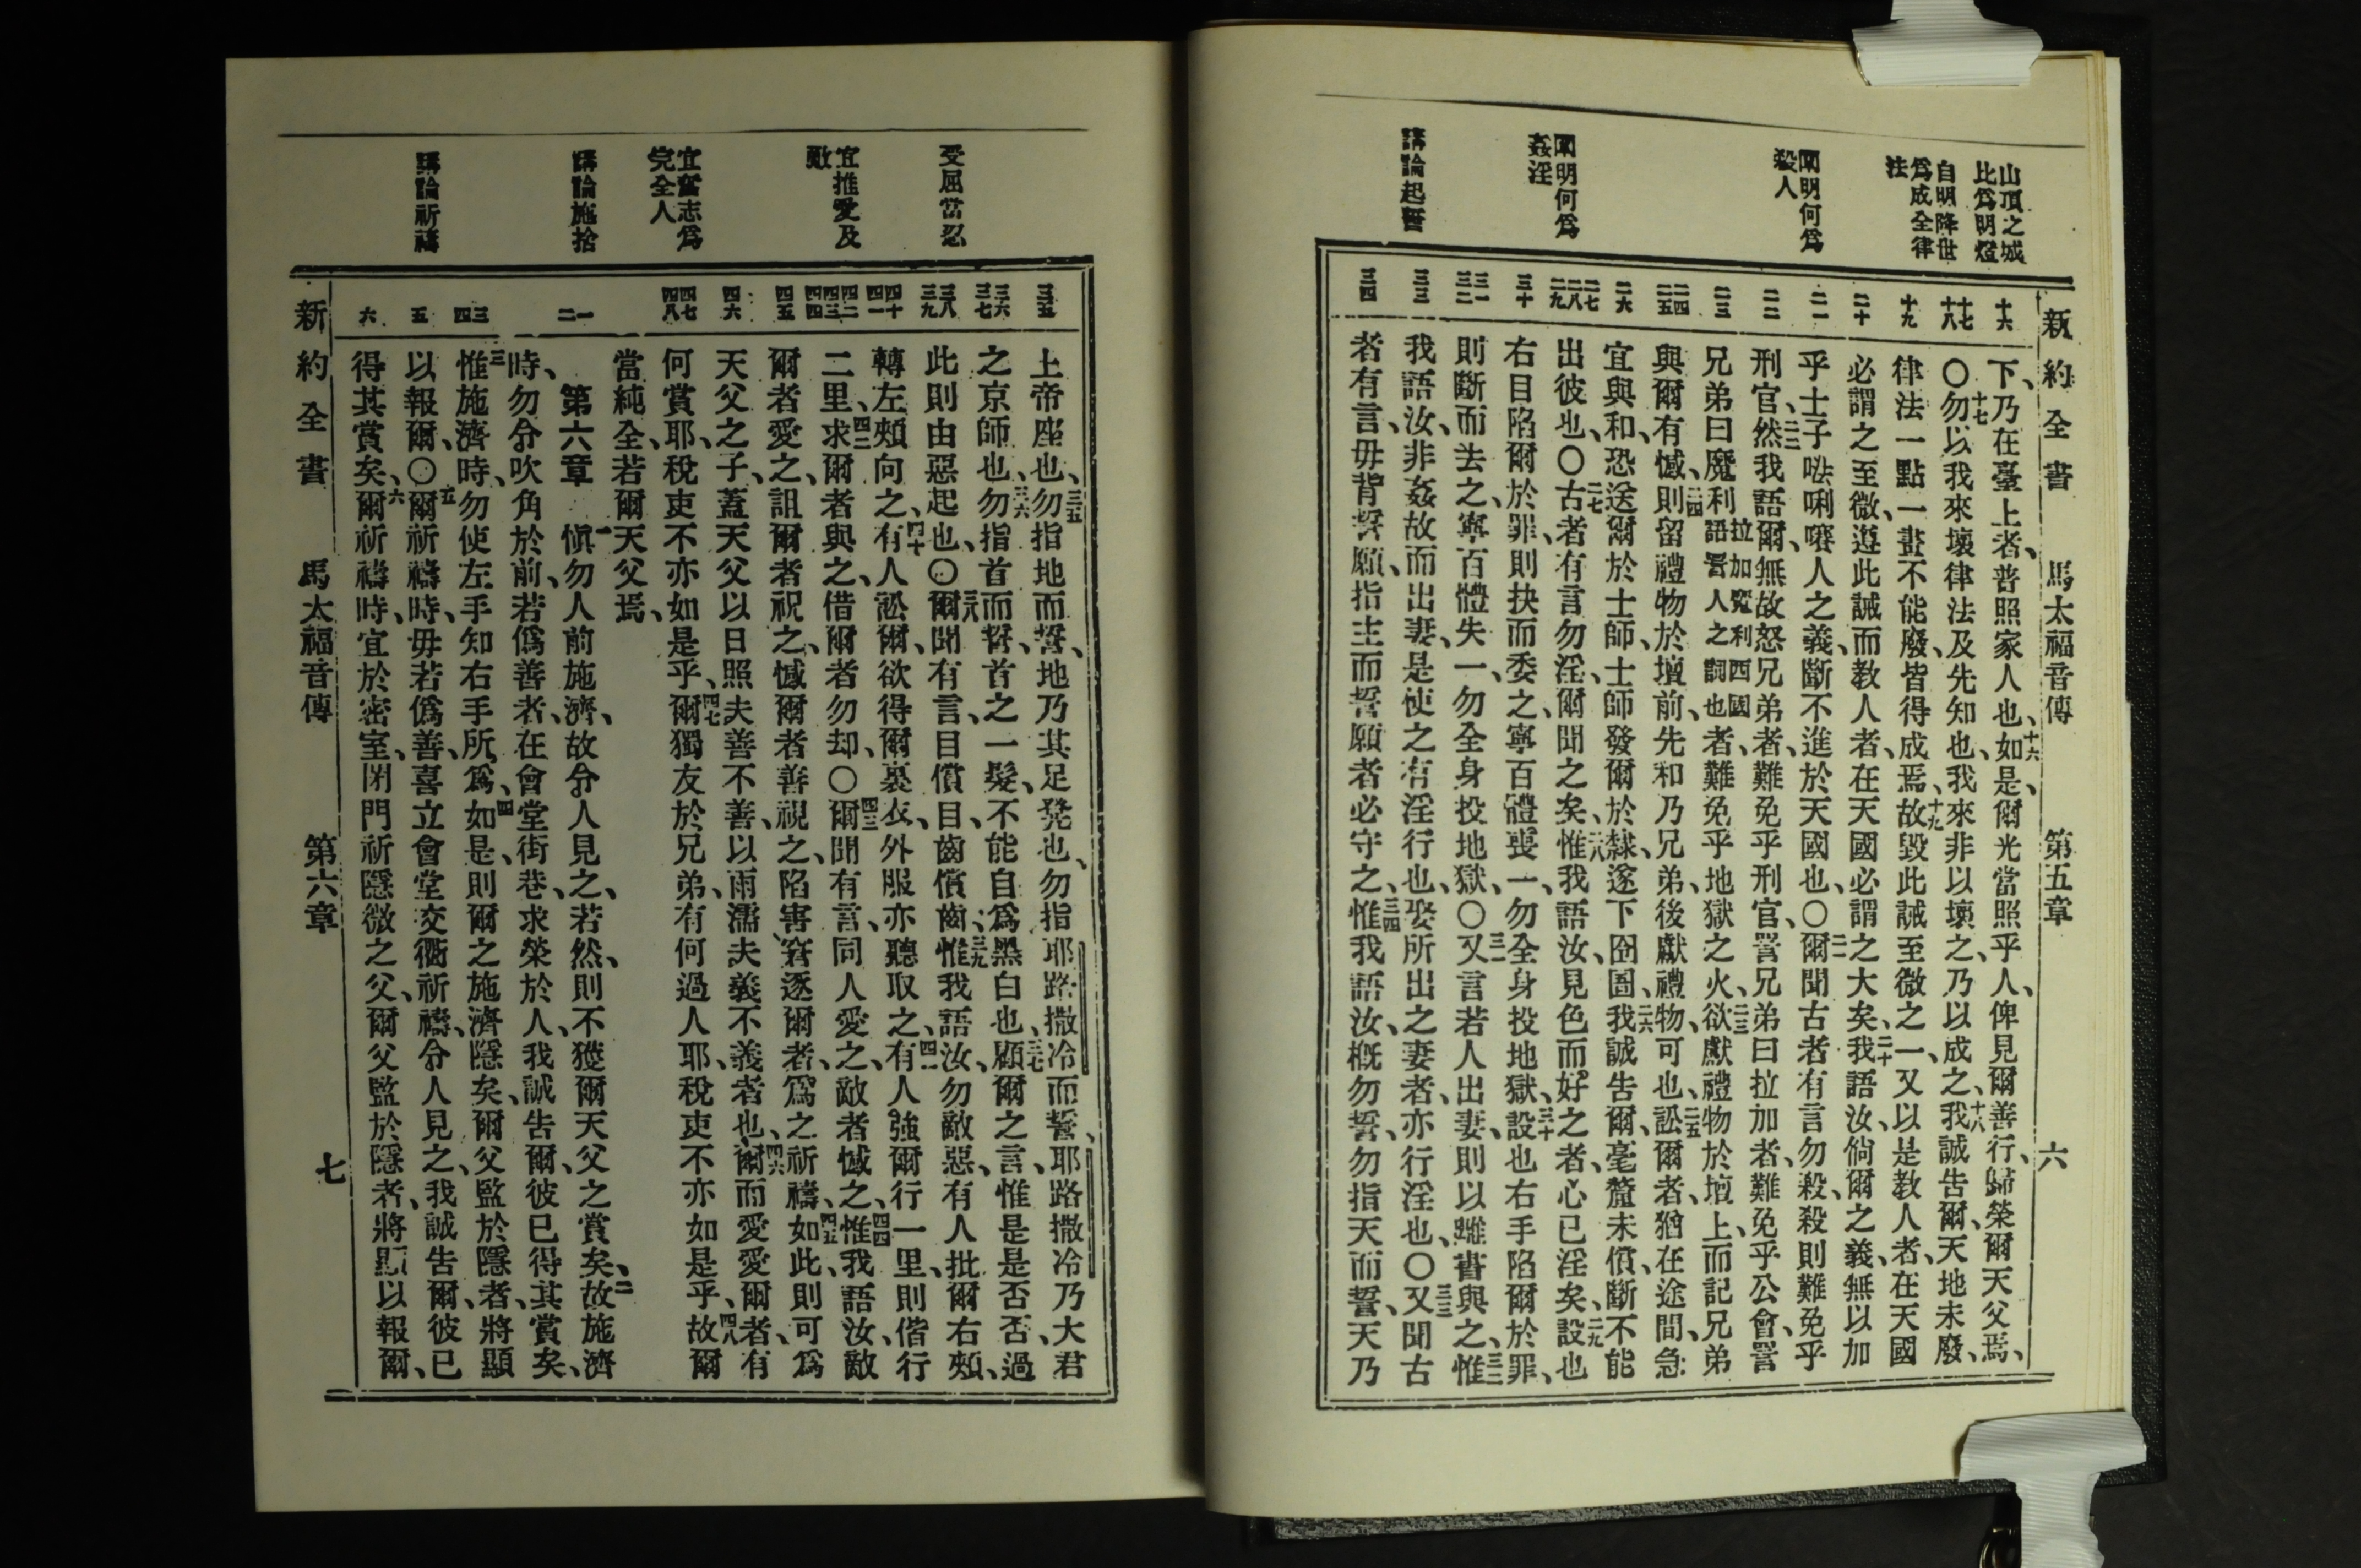 新約全書 馬太福音傳 第五章 六
山頂之城
比爲明燈
自明降世
爲成全律
法
闡明何爲
殺人
闡明何爲
姦淫
講論起誓
十六
十七
十八
十九
二十
二一
二二
二三
二四
二五
二六
二七
二八
二九
三十
三一
三二
三三
三四
下、乃在臺上者、普照家人也、十六如是、爾光當照乎人、俾見爾善行、歸榮爾天父焉、
〇十七勿以我來壞律法及先知也、我來非以壞之、乃以成之、十八我誠告爾、天地未廢、
律法一點一畫不能廢、皆得成焉、十九故毀此誡至微之一、又以是教人者、在天國
必謂之至微、遵此誡而教人者、在天國必謂之大矣、二十我語汝、倘爾之義、無以加
乎士子𠵽唎㘔人之義、斷不進於天國也、〇二一爾聞古者有言勿殺、殺則難免乎
刑官、二二然我語爾、無故怒兄弟者、難免乎刑官、詈兄弟曰拉加者、難免乎公會、詈
兄弟曰魔利拉加魔利西國語詈人之詞也者、難免乎地獄之火、二三欲獻禮物於壇上、而記兄弟
與爾有憾、二四則留禮物於壇前、先和乃兄弟、後獻禮物、可也、二五訟爾者、猶在途間、急
宜與和、恐送爾於士師、士師發爾於隸、遂下囹圄、二六我誠告爾、毫釐未償、斷不能
出彼也、〇二七古者有言勿淫、爾聞之矣、二八惟我語汝、見色而好之者、心已淫矣、二九設也
右目陷爾於罪、則抉而委之、寧百體喪一、勿全身投地獄、三十設也右手陷爾於罪、
則斷而去之、寧百體失一、勿全身投地獄、〇三一又言若人出妻、則以離書與之、三二惟
我語汝、非姦故而出妻、是使之有淫行也、娶所出之妻者、亦行淫也、〇三三又聞古
者有言、毋背誓願、指主而誓願者必守之、三四惟我語汝、概勿誓、勿指天而誓、天乃
受屈當忍
宜推愛及
敵
宜奮志爲
完全人
講論施捨
講論祈禱
三五
三六
三七
三八
三九
四十
四一
四二
四三
四四
四五
四六
四七
四八
一
二
三
四
五
六
上帝座也、三五勿指地而誓、地乃其足凳也、勿指耶路撒冷而誓、耶路撒冷乃大君
之京師也、三六勿指首而誓、首之一髮、不能自爲黑白也、三七顧爾之言、惟是是否否、過
此則由惡起也、〇三八爾聞有言、目償目、齒償齒、三九惟我語汝、勿敵惡、有人批爾右頰、
轉左頰向之、四十有人訟爾、欲得爾裏衣、外服亦聽取之、四一有人強爾行一里、則偕行
二里、四二求爾者與之、借爾者勿却、〇四三爾聞有言、同人愛之、敵者憾之、四四惟我語汝、敵
爾者愛之、詛爾者祝之、憾爾者善視之、陷害窘逐爾者、爲之祈禱、四五如此、則可爲
天父之子、蓋天父以日照夫善不善、以雨濡夫義不義者也、四六爾而愛愛爾者、有
何賞耶、稅吏不亦如是乎、四七爾獨友於兄弟、有何過人耶、稅吏不亦如是乎、四八故爾
當純全、若爾天父焉、
第六章 一愼勿人前施濟、故令人見之、若然、則不獲爾天父之賞矣、二故施濟
時、勿令吹角於前、若僞善者、在會堂街巷、求榮於人、我誠告爾、彼已得其賞矣、
三惟施濟時、勿使左手知右手所爲、四如是、則爾之施濟隱矣、爾父監於隱者、將顯
以報爾、〇五爾祈禱時、毋若僞善、喜立會堂交衢祈禱、令人見之、我誠告爾、彼已
得其賞矣、六爾祈禱時、宜於密室、閉門祈隱微之父、爾父監於隱者、將顯以報爾、
新約全書 馬太福音傳 第六章 七